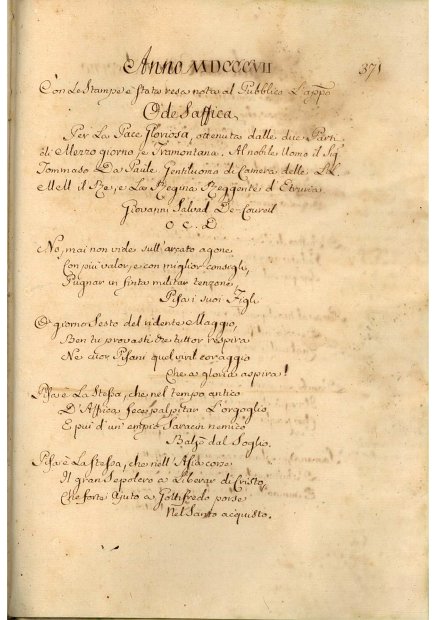 Anno MDCCCVII
371
Con Le Stampe è stata resa nota al Pubblico L'appo
Ode Saffica
Per La Pace Gloriosa, ottenuta dalle due Parti
di Mezzogiorno, e Tramontana. Al nobile Uomo il Sig
Tommaso Da Paule Gentiluomo di Camera delle LL
MM il Re, e La Regina Reggente d'Etruria
Giovanni Salvad De-Coureil
O. C. D
No, mai non vide sull'arcato agone
Con più valor, e con miglior consigli,
Pugnar in finta militar tenzone
Pisa i suoi Figli
O giorno sesto del ridente Maggio,
Ben tu provasti che tuttor respira
Ne' cuor Pisani quel viril coraggio
Che a gloria aspira!
Pisa è La stessa, che nel tempo antico
D'Affrica feces palpitar L'orgoglio,
E più d'un empio Saracin nemico
Balzò dal Soglio.
Pisa è La stessa, che nell'Asia corse
Il gran Sepolcro a Liberar di Cristo,
Che forte Ajuto a Gottifredo porse
Nel Santo acquisto.